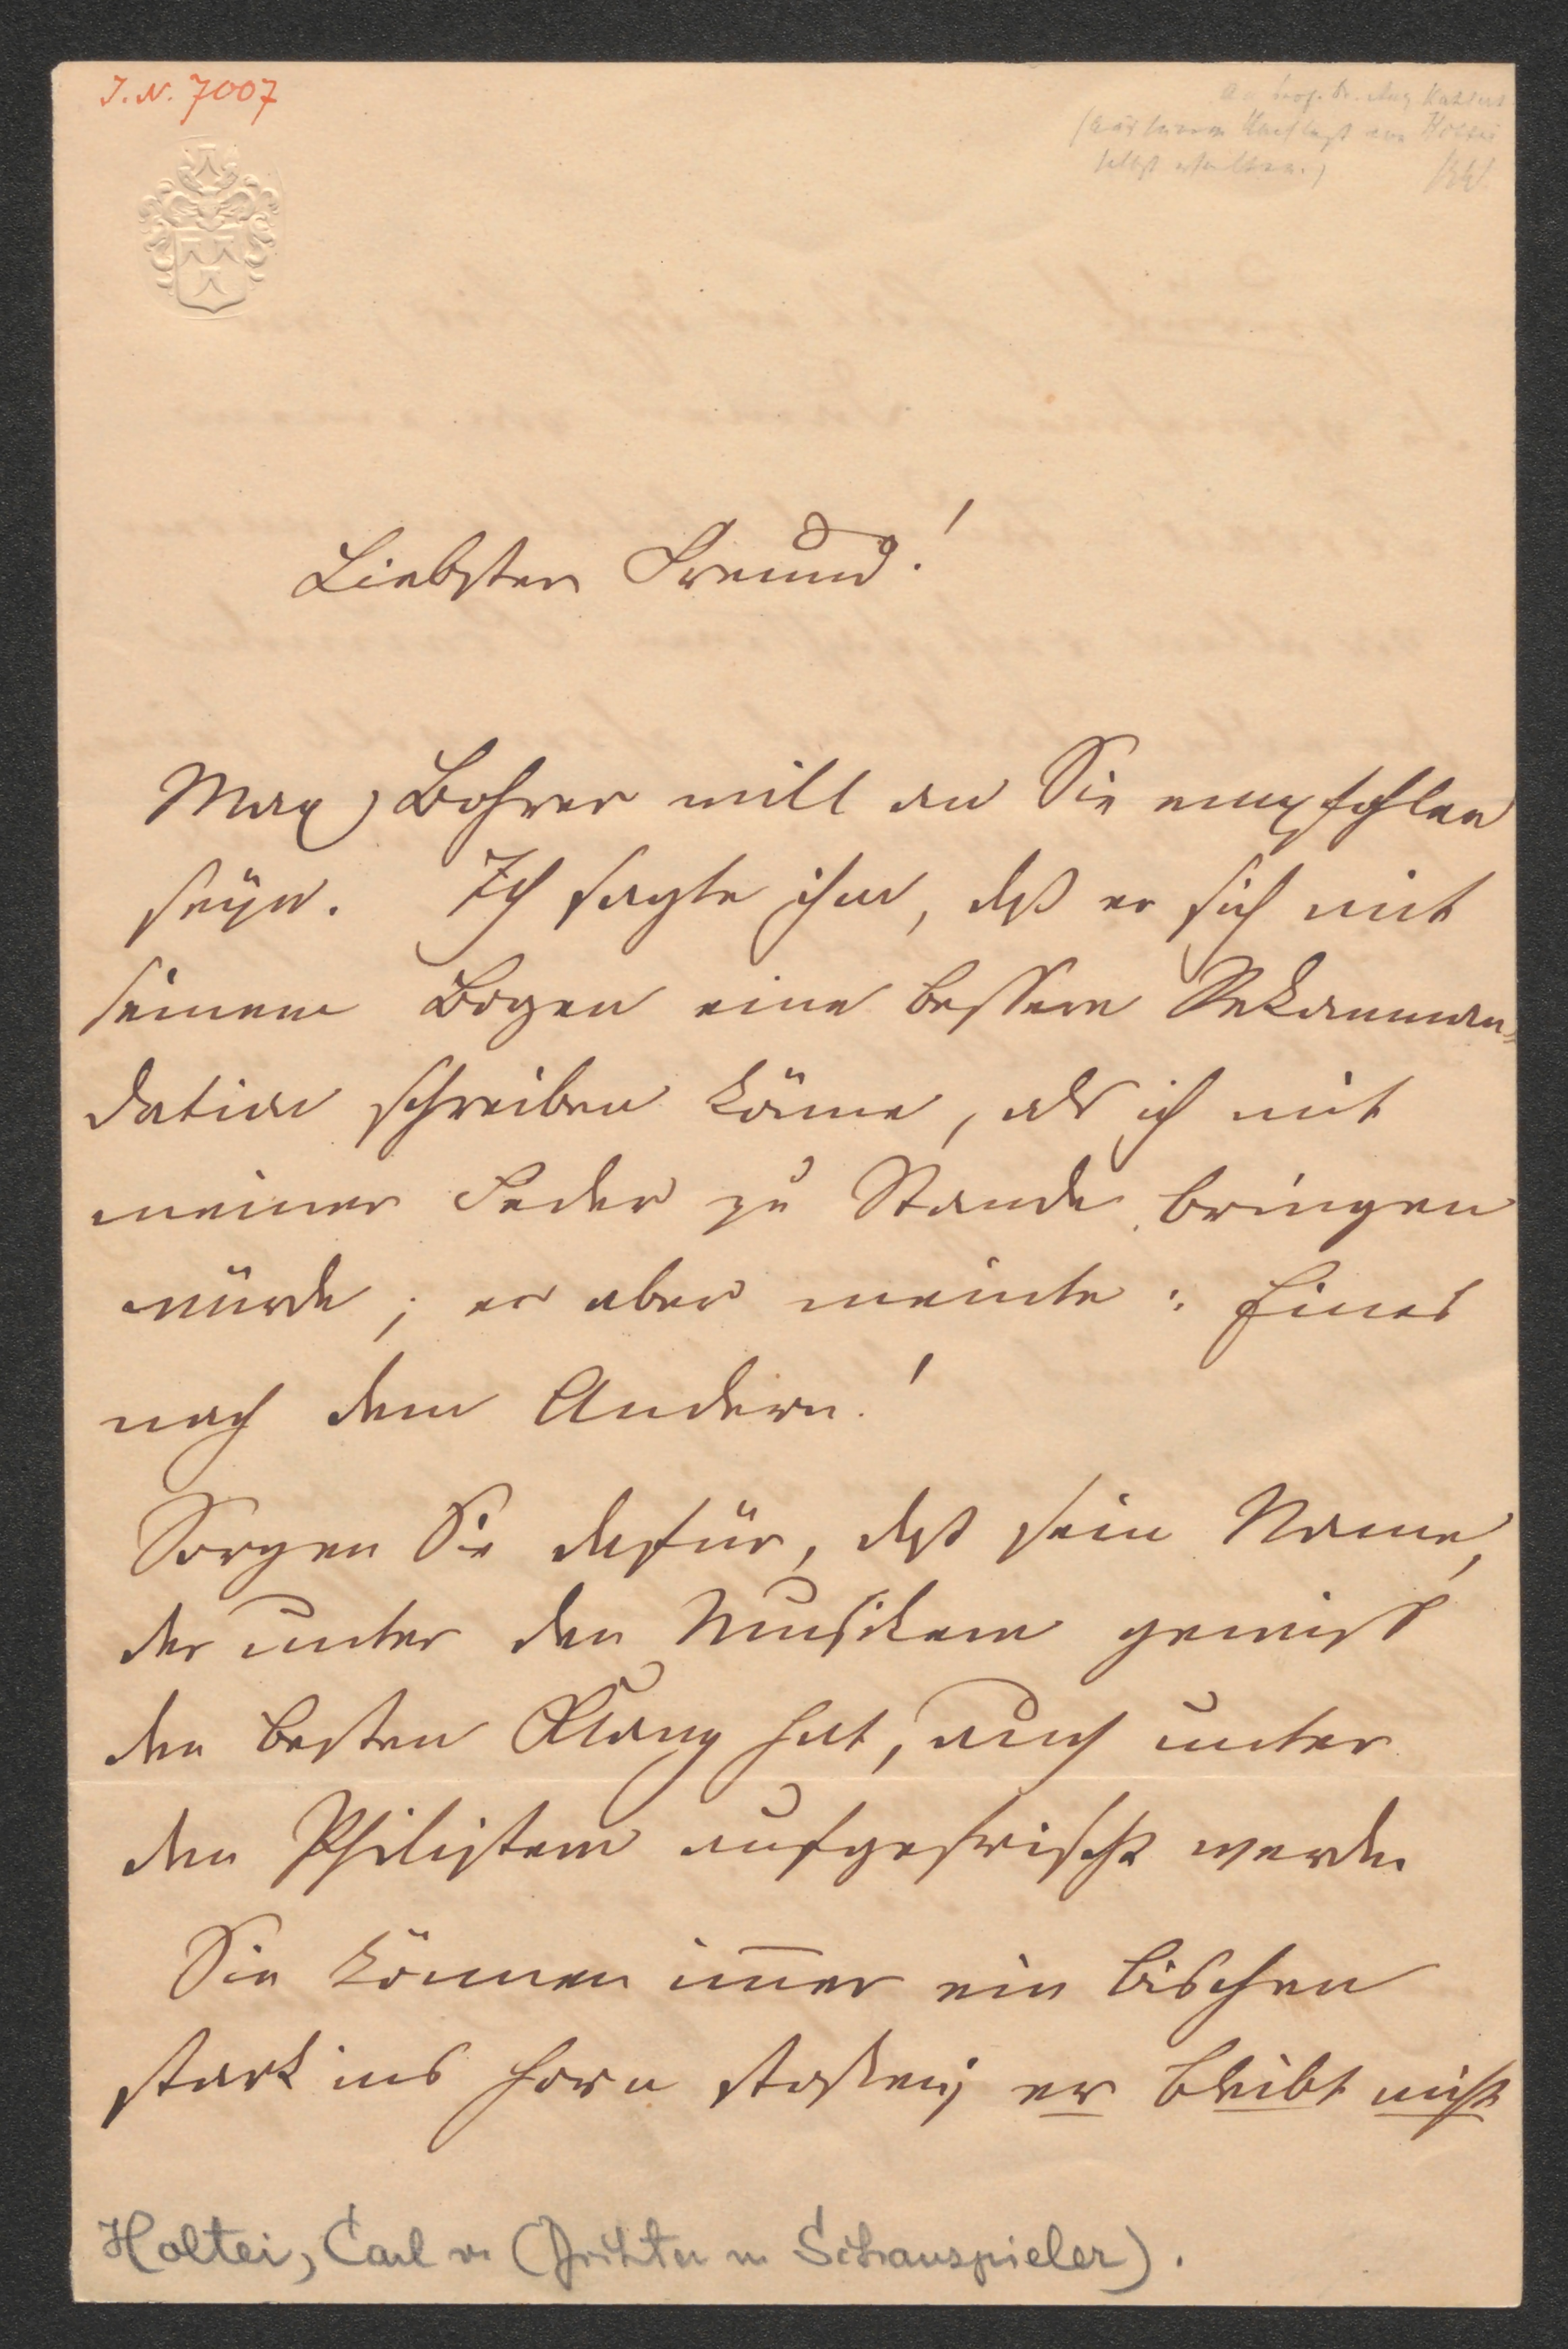 J. N. 7007
An Prof. Dr. Aug Kahlert
(aus seinem Nachlaß von Holtei
selbst erhalten.)
Liebster Freund!
Max Bohrer will an Sie empfohlen
seÿn. Ich sagte ihm, daß er sich mit
seinem Bogen eine bessere Rekomman=
dation schreiben könne, als ich mit
meiner Feder zu Stande bringen
würde; er aber meinte: Eines
nach dem Andern!
Sorgen Sie dafür, daß sein Name,
der unter den Musikern gewiß
den besten Klang hat, auch unter
den Philistern aufgefrischt werde.
Sie können im̅er ein bischen
stark ins Horn stoßen; er bleibt nicht
Holtei, Carl v. (Dichter u Schauspieler).